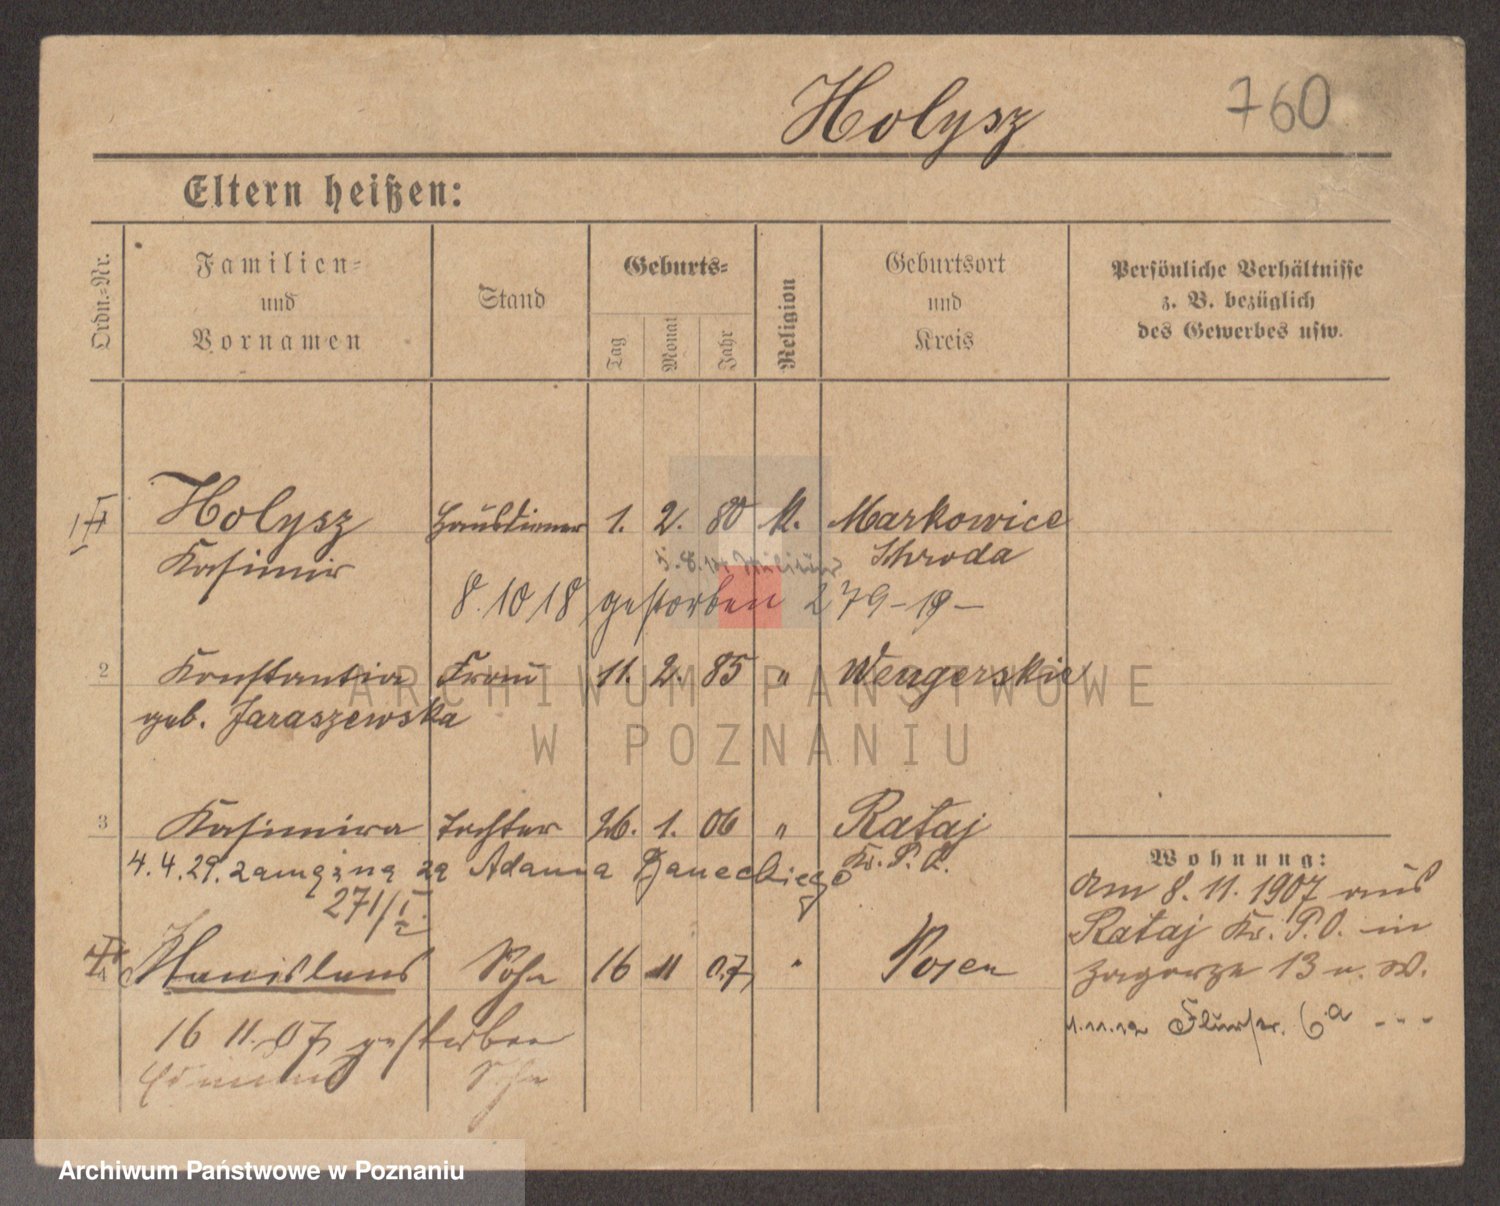 Holysz 760
Eltern heißen:
Ordn.-Nr.
Familien-
und
Vornamen
Stand
Geburts-
Tag
Monat
Jahr
Religion
Geburtsort
und
Kreis
Persönliche Verhältnisse
z. B. bezüglich
des Gewerbes usw.
Holysz Hausdiener 1. 2. 80 K. Markowice
Kasimir Schroda
5.8. Militär
8.10 18 gestorben 279-19-
2 Konstantia Frau 11. 2. 85 " Wengerskie
geb. Jaraszewska
3 Kasimira Tochter 26. 1. 06 " Rataj
Kr. P. O.
4.4.29. zamężna za Adama Baneckiego
271/I.
Stanislaus Sohn 16 11 07 " Posen
16 11. 07 gestorben
Edmund Sohn
Wohnung:
Am 8. 11. 1907 aus
Rataj Kr. P. O. in
Zagorze 13 u. W.
1.11.12 Flurstr. 6a - - -
ARCHIWUM PAŃSTWOWE
W POZNANIU
Archiwum Państwowe w Poznaniu